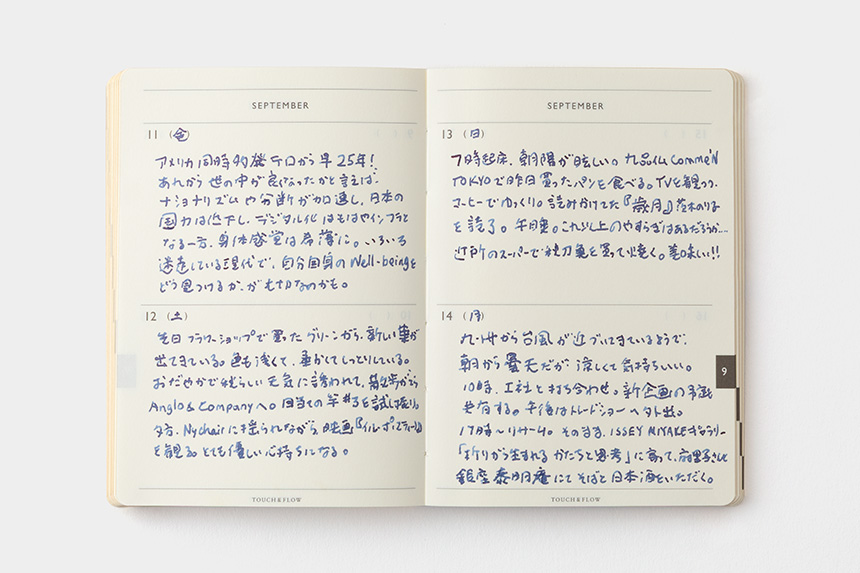 SEPTEMBER
11 (金)
アメリカ同時多発テロから早25年!
あれから世の中が良くなったかと言えば、
ナショナリズムや分断が加速し、日本の
国力は低下し、デジタル化はもはやインフラと
なる一方、身体感覚は希薄に。いろいろ
迷走している現代で、自分自身のWell-beingを
どう見つけるか、がもさかなのかも。
12 (土)
先日フラワーショップで買ったグリーンから、新しい葉が
出てきている。色も浅くて、垂れてしっとりしている。
おだやかで秋らしい天気に誘われて、散歩がてら
Anglo & Companyへ。目当ての竿を試し振り。
夕方、Nychairに揺られながら、映画『イル・ポスティーノ』
を観る。とても優しい心持ちになる。
TOUCH & FLOW
SEPTEMBER
13 (日)
7時起床、朝陽が眩しい。九品仏Comme'N
TOKYOで昨日買ったパンを食べる。TVを観つつ、
コーヒーでゆっくり。読みかけてた『歳月』茨木のり子
を読了。午睡。これ以上のやすらぎはあるだろうか…
近所のスーパーで秋刀魚を買って焼く。美味しい!!
14 (月)
九州から台風が近づいてきているようで、
朝から曇天だが、涼しくて気持ちいい。
10時、I社と打ち合わせ。新企画の
共有する。午後はトレードショーへ外出。
17時〜リサーチ。そのまま、ISSEY MIYAKEギャラリー
「折りから生まれるかたちと思考」に寄って、さんと
銀座 泰明庵にてそばと日本酒をいただく。
9
TOUCH & FLOW